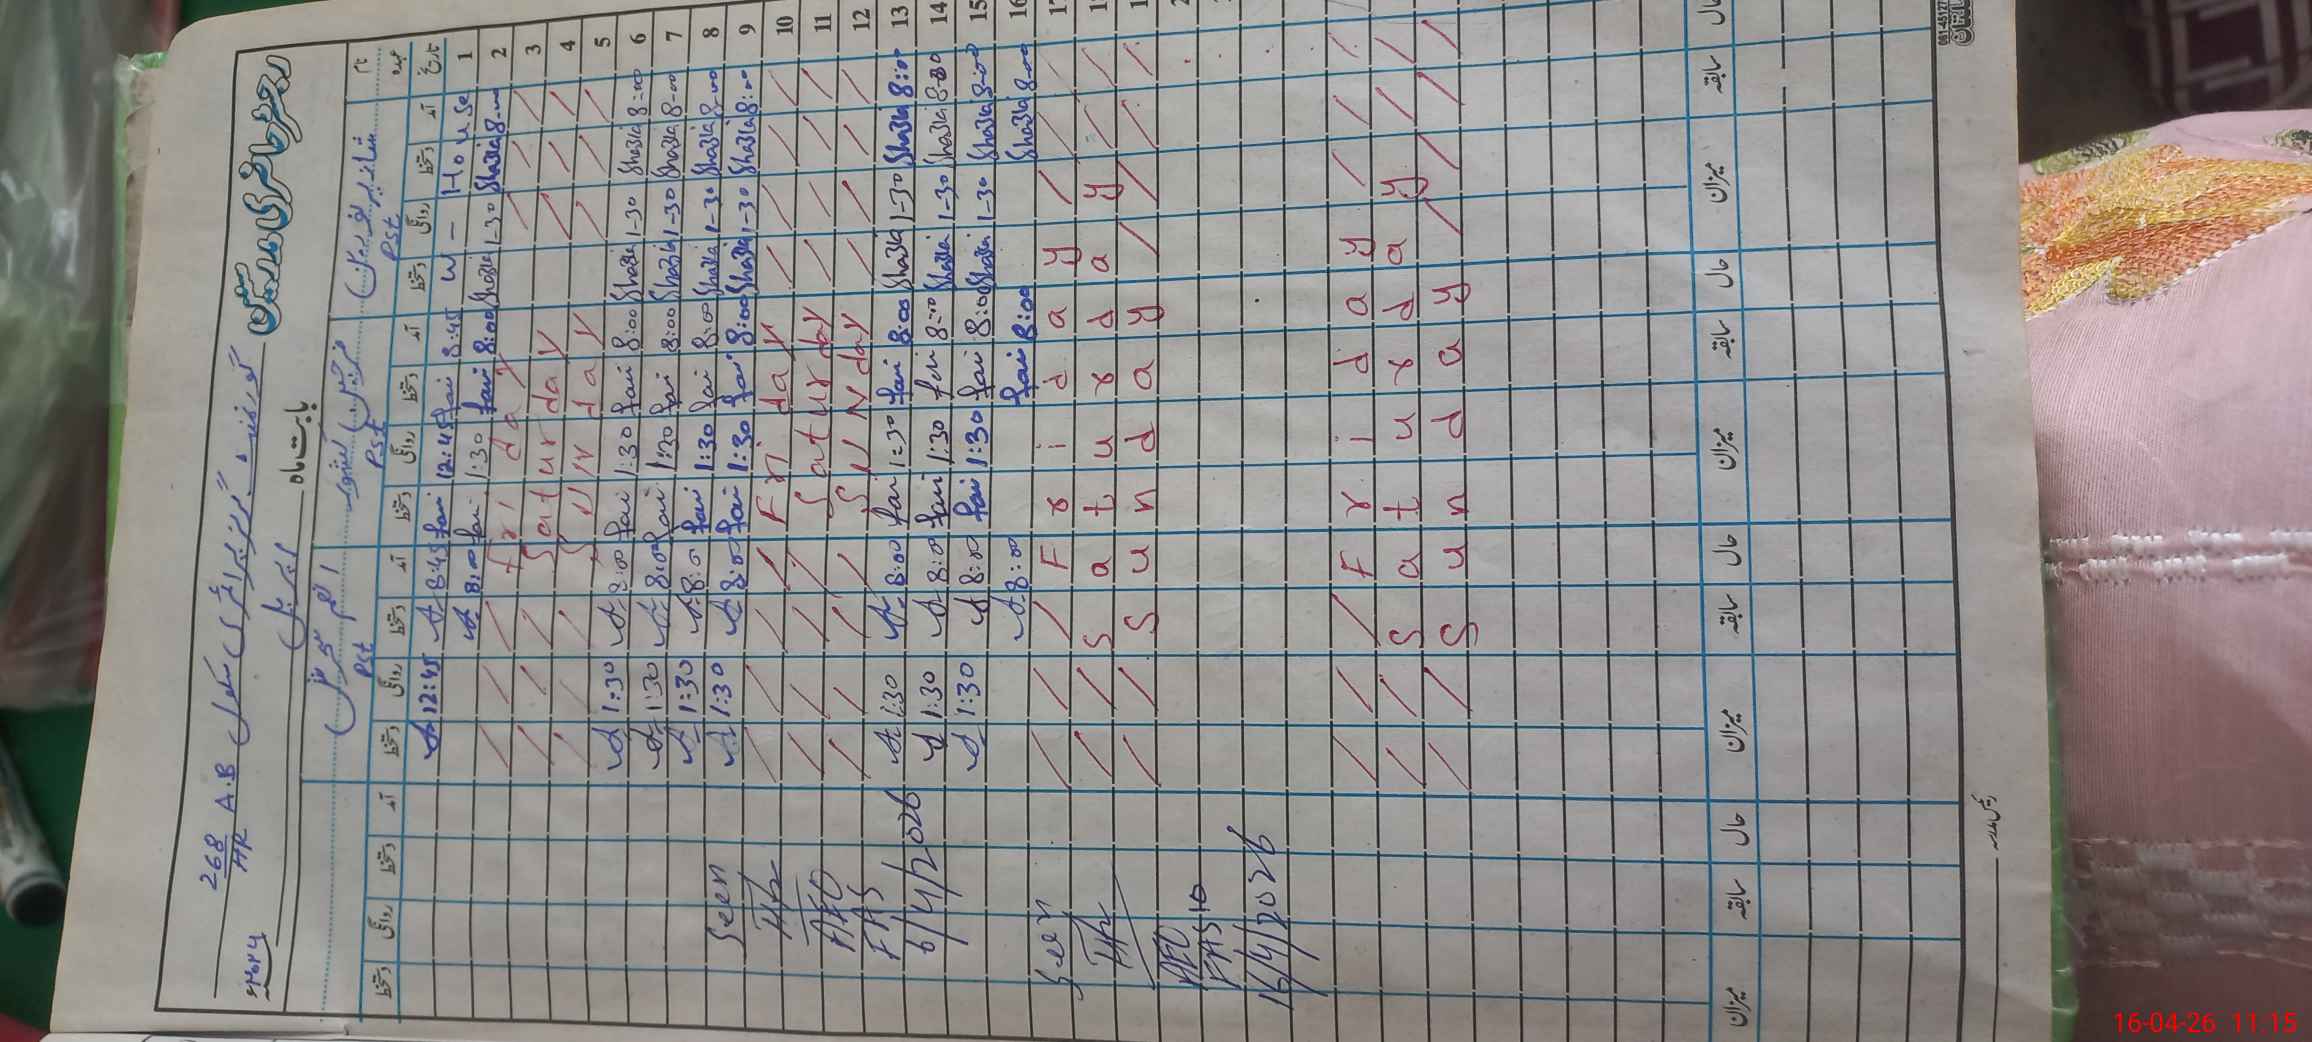 رجسٹر حاضری مدرسین
گورنمنٹ گرلز پرائمری سکول 268/HR A.B
بابت ماہ اپریل ۲۰۲۶ء
نام
عہدہ Pst Pst Pst
تاریخ آمد دستخط روانگی دستخط آمد دستخط روانگی دستخط آمد دستخط روانگی دستخط آمد دستخط روانگی دستخط
1 House - W 8:45 fari 12:45 fari 8:45 12:45
2 8-00 Shazia 1-30 Shazia 8:00 fari 1:30 fari 8:00
3 Friday
4 Saturday
5 Sunday
6 8-00 Shazia 1-30 Shazia 8:00 fari 1:30 fari 8:00 1:30
7 8-00 Shazia 1-30 Shazia 8:00 fari 1:30 fari 8:00 1:30
8 8-00 Shazia 1-30 Shazia 8:00 fari 1:30 fari 8:00 1:30
9 8:00 Shazia 1-30 Shazia 8:00 fari 1:30 fari 8:00 1:30
10 Friday
11 Saturday
12 SUNNday
13 8:00 Shazia 1-30 Shazia 8:00 fari 1:30 fari 8:00 1:30
14 8-00 Shazia 1-30 Shazia 8-00 fari 1:30 fari 8:00 1:30
15 8-00 Shazia 1-30 Shazia 8:00 fari 1:30 fari 8:00 1:30
16 8-00 Shazia 8:00 fari 8:00
Friday
Saturday
Sunday
Friday
Saturday
Sunday
Seen
AEO
FAS
6/4/2026
Seen
AEO
FAS 10
16/4/2026
حال سابقہ میزان حال سابقہ میزان حال سابقہ میزان حال سابقہ میزان
16-04-26 11:15